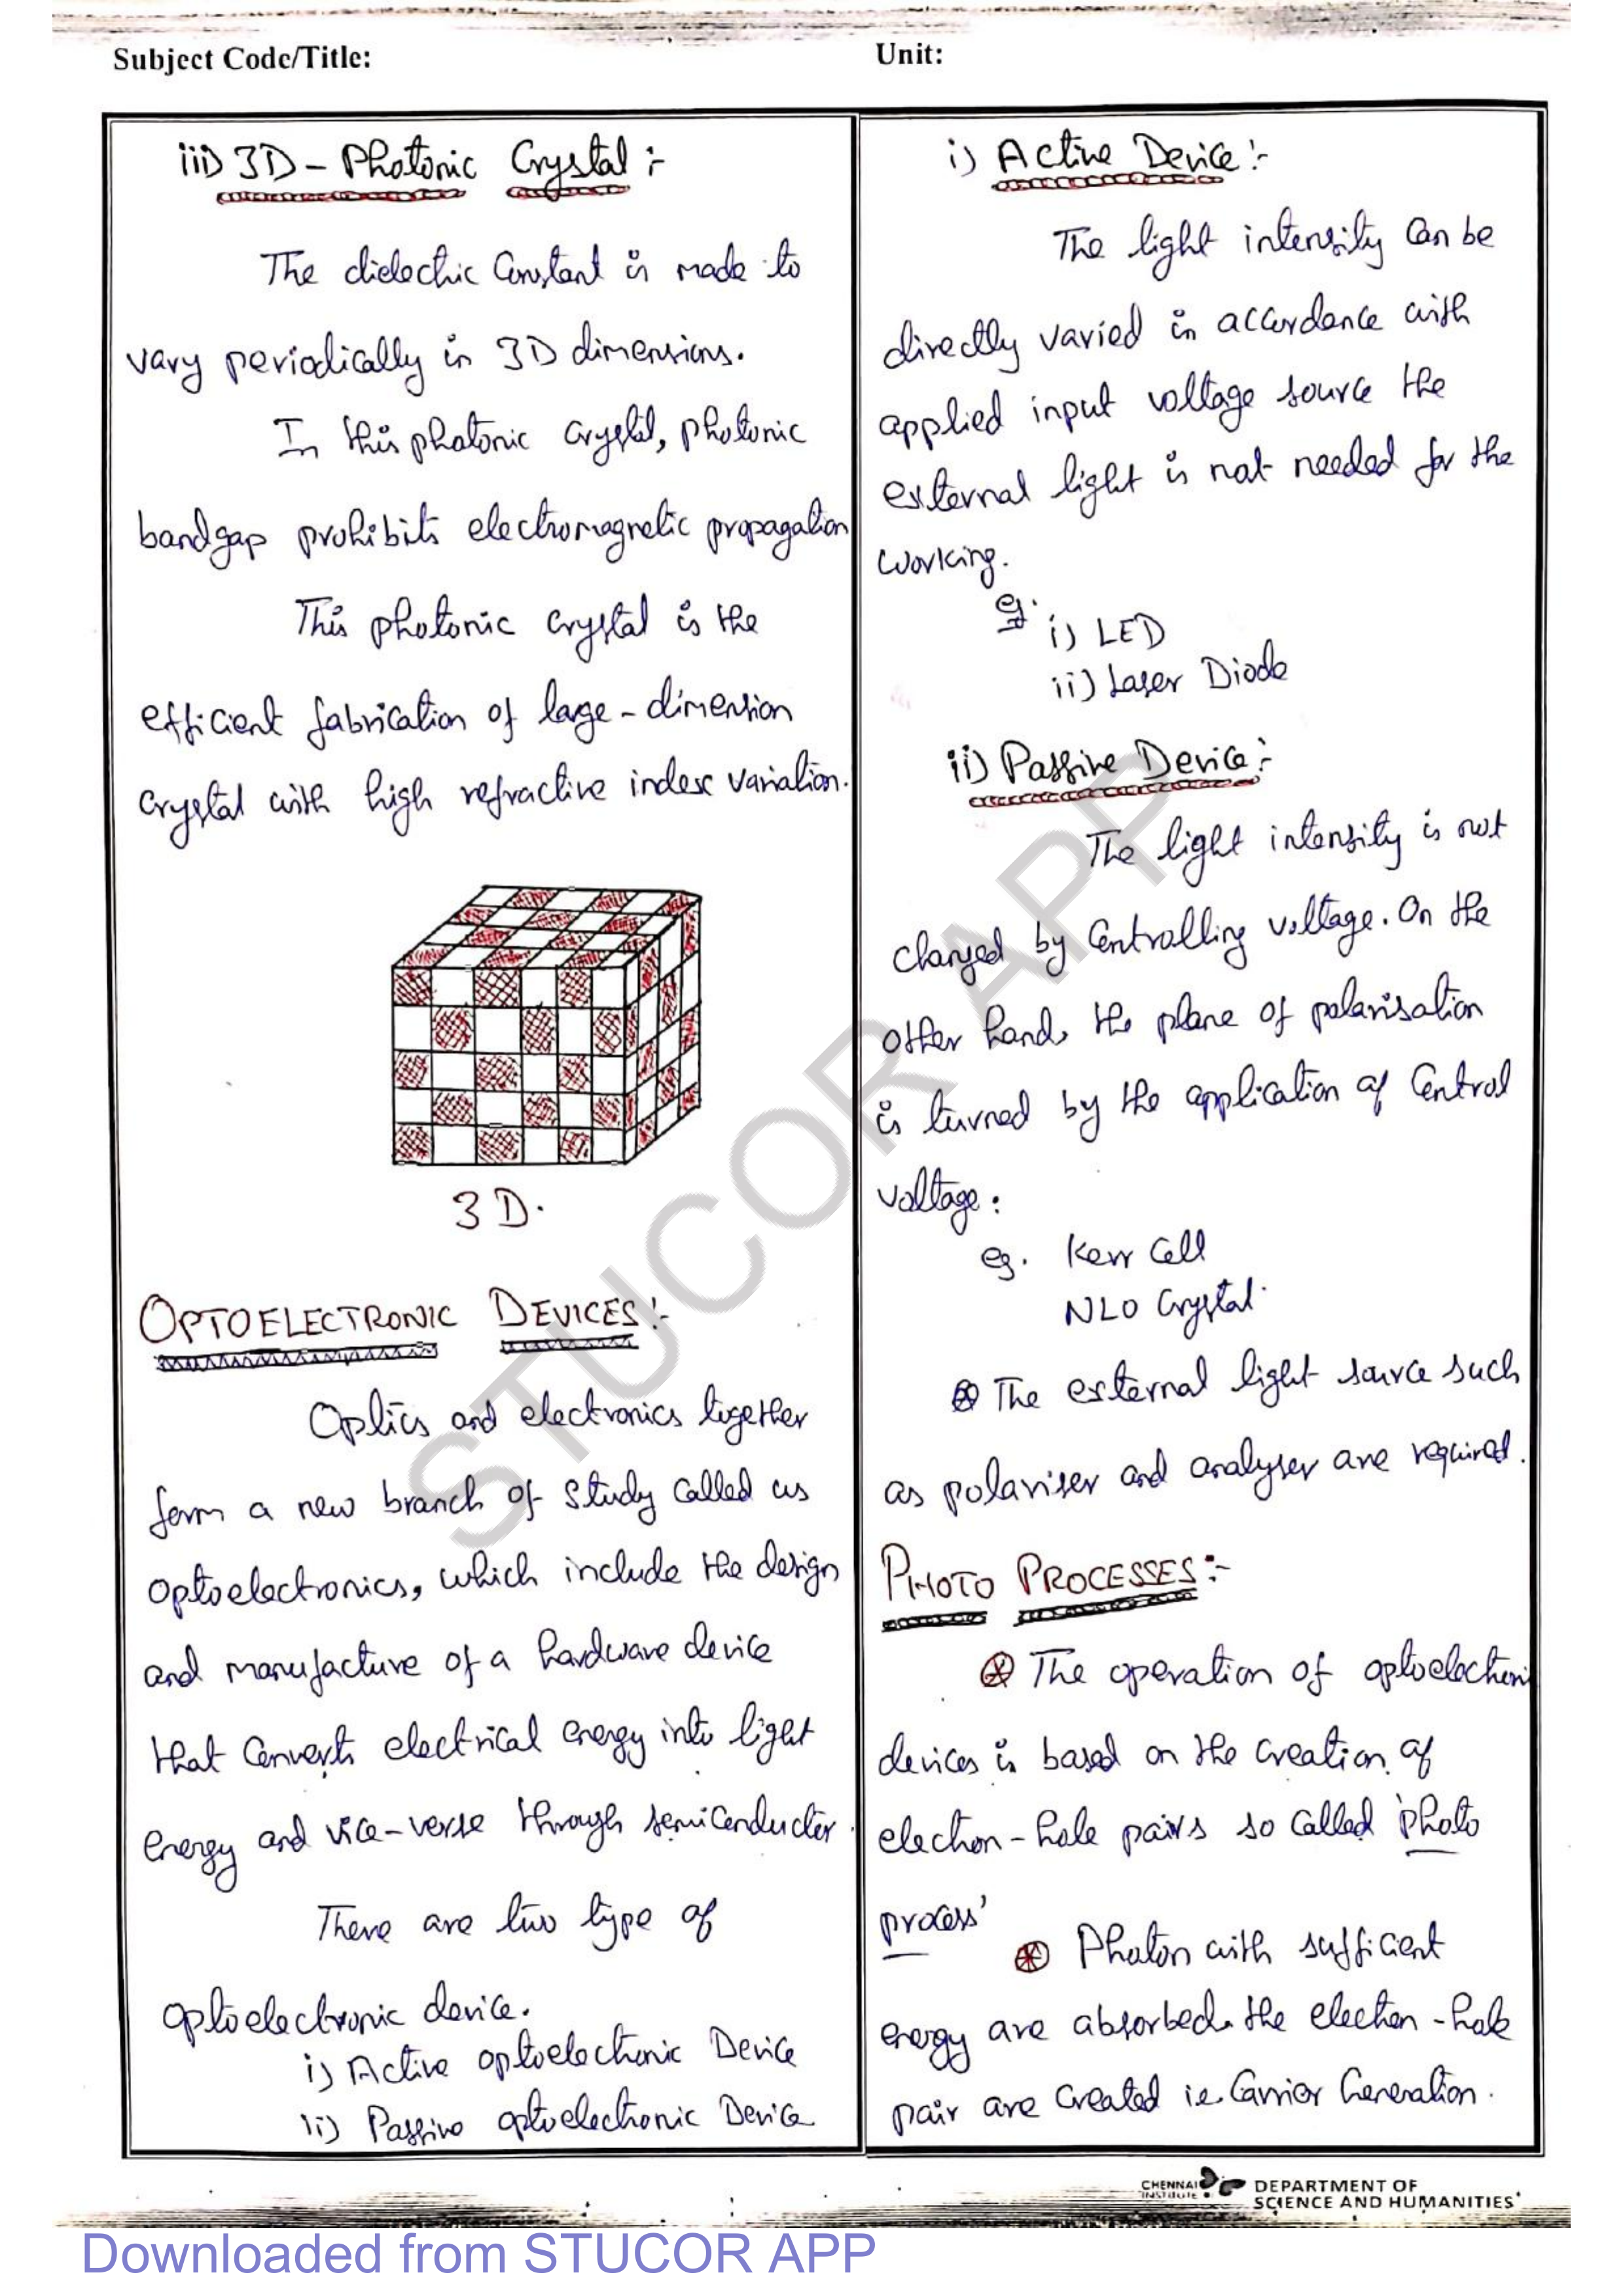 Subject Code/Title:
Unit:
iii) 3D - Photonic Crystal :-
The dielectric Constant is made to
vary periodically in 3D dimensions.
In this photonic crystal, photonic
bandgap prohibits electromagnetic propagation
This photonic crystal is the
efficient fabrication of large - dimension
crystal with high refractive index variation.
3 D.
OPTOELECTRONIC DEVICES :-
Optics and electronics together
form a new branch of study called as
optoelectronics, which include the design
and manufacture of a hardware device
that converts electrical energy into light
energy and vice-verse through semiconductor.
There are two type of
optoelectronic device.
i) Active optoelectronic Device
ii) Passive optoelectronic Device
i) Active Device :-
The light intensity can be
directly varied in accordance with
applied input voltage source the
external light is not needed for the
working.
eg. i) LED
ii) Laser Diode
ii) Passive Device :-
The light intensity is not
changed by controlling voltage. On the
other hand, the plane of polarisation
is turned by the application of control
voltage :
eg. Kerr Cell
NLO Crystal.
The external light source such
as polariser and analyser are required.
PHOTO PROCESSES :-
The operation of optoelectroni
devices is based on the creation of
electron - hole pairs so called 'photo
process'
Photon with sufficient
energy are absorbed. the electron - hole
pair are created i.e. Carrier Generation.
STUCOR APP
CHENNAI
INSTITUTE
DEPARTMENT OF
SCIENCE AND HUMANITIES
Downloaded from STUCOR APP